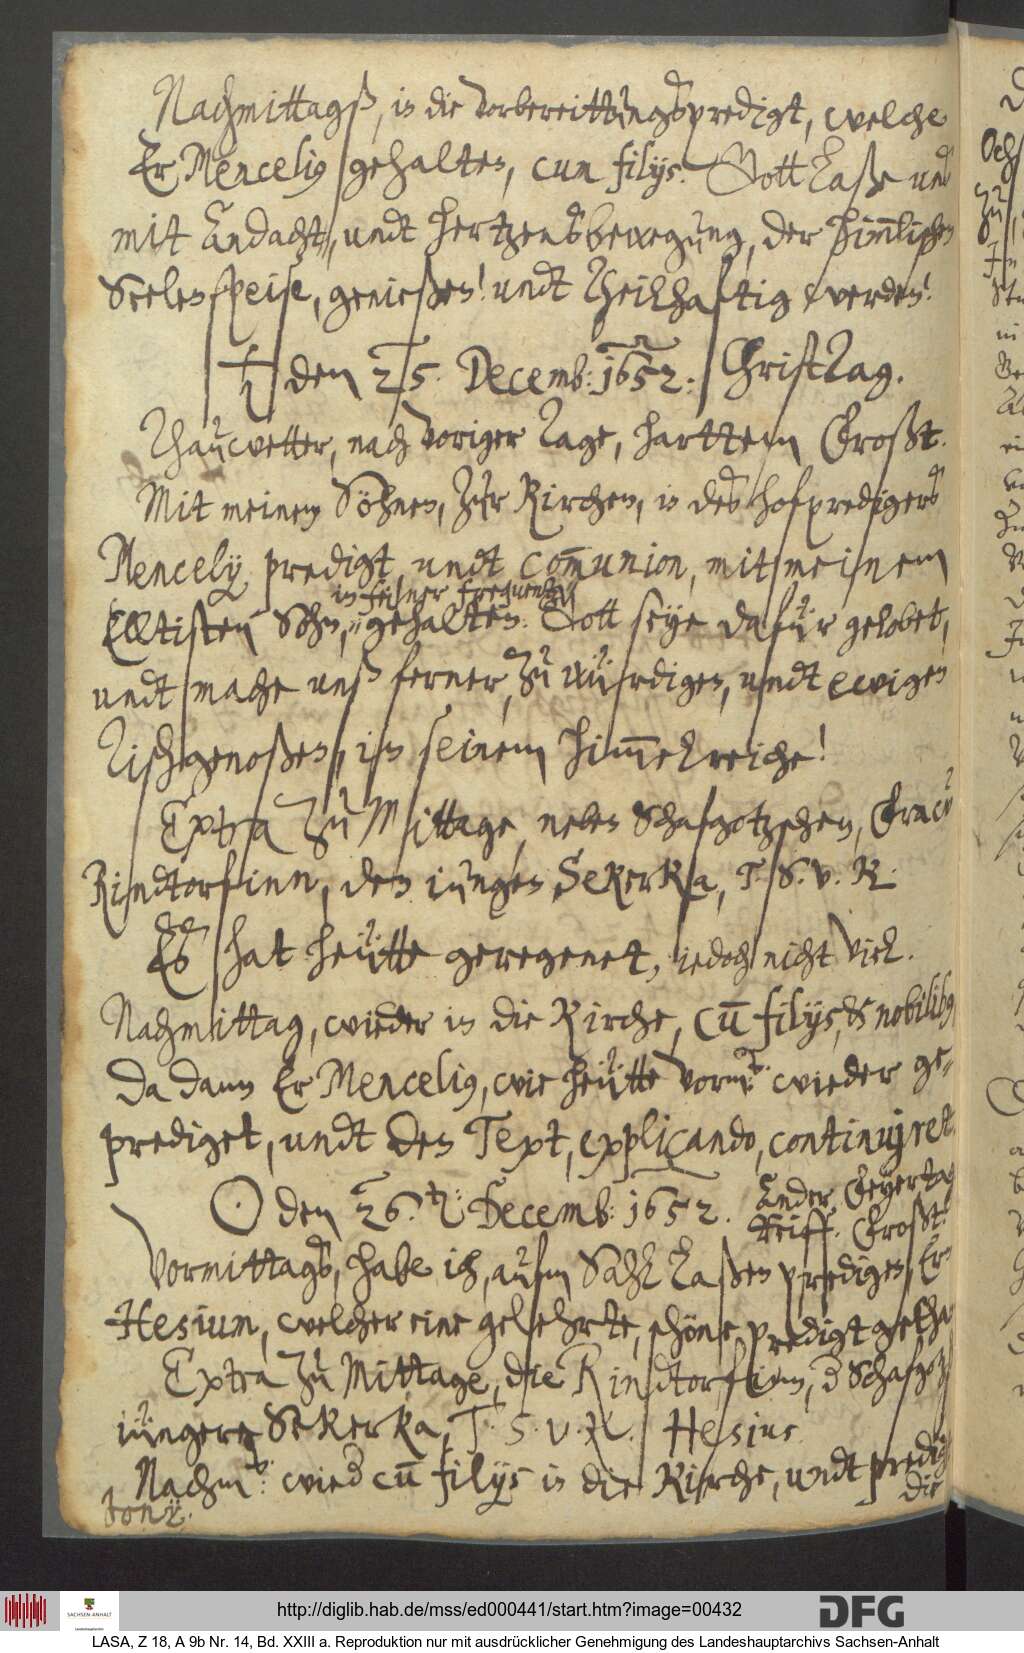 Nachmittagß, in die vorbereittungspredigt, welche
Er Mencelius gehalten, cum filijs. Gott laße unß
mit andacht, undt hertzensbewegung, der him̅lischen
Seelenspeise, genießen! undt theilhaftig werden!
♄ den 25. Decemb: 1652. Christtag.
Thauwetter, nach voriger tage, harttem Frost.
Mit meinen Söhnen, zur Kirchen, in des hofpredigers
Mencelij predigt, undt com̅union, mit meinem
in feiner frequentz
Elltisten Sohn, gehalten. Gott seye dafür gelobet,
undt mache unß ferner, zu würdigen, undt ewigen
Tischgenoßen, in seinem Him̅elreiche!
Extra zu Mittage, neben Schafgotzschen,
Rindtorfinn, den iungen Sekerka, T. S. v. R.
Es hat heütte geregenet, iedoch nicht viel.
Nachmittag, wieder in die Kirche, cu̅ filijs, & nobilibus
Da dann Er Mencelius, wie heütte vorm: wieder ge-
prediget, undt den Text, explicando, continuiret.
☉ den 26. Decemb: 1652. Ander Feyertag
Reiff. Frost.
Vormittags, habe ich, aufm Sahl laßen predigen, Ern
Hesium, welcher eine gelehrte, schöne predigt gethan
Extra zu Mittage, die Rindtorfinn, Schafgotzsch
iüngere Sekerka, T. S. v. R. Hesius
Nachm: wied cu̅ filijs in die Kirche, undt predigt
Tonij.
die
http://diglib.hab.de/mss/ed000441/start.htm?image=00432
DFG
SACHSEN-ANHALT
LASA, Z 18, A 9b Nr. 14, Bd. XXIII a. Reproduktion nur mit ausdrücklicher Genehmigung des Landeshauptarchivs Sachsen-Anhalt